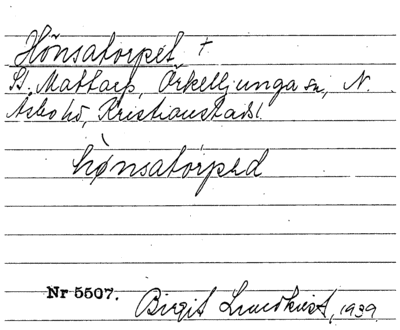 Hönsatorpet †
St. Mattarp, Örkelljunga sn, N.
Åsbo hd, Kristianstads l.
hønsatórped
Nr 5507.
Birgit Lundkvist, 1939